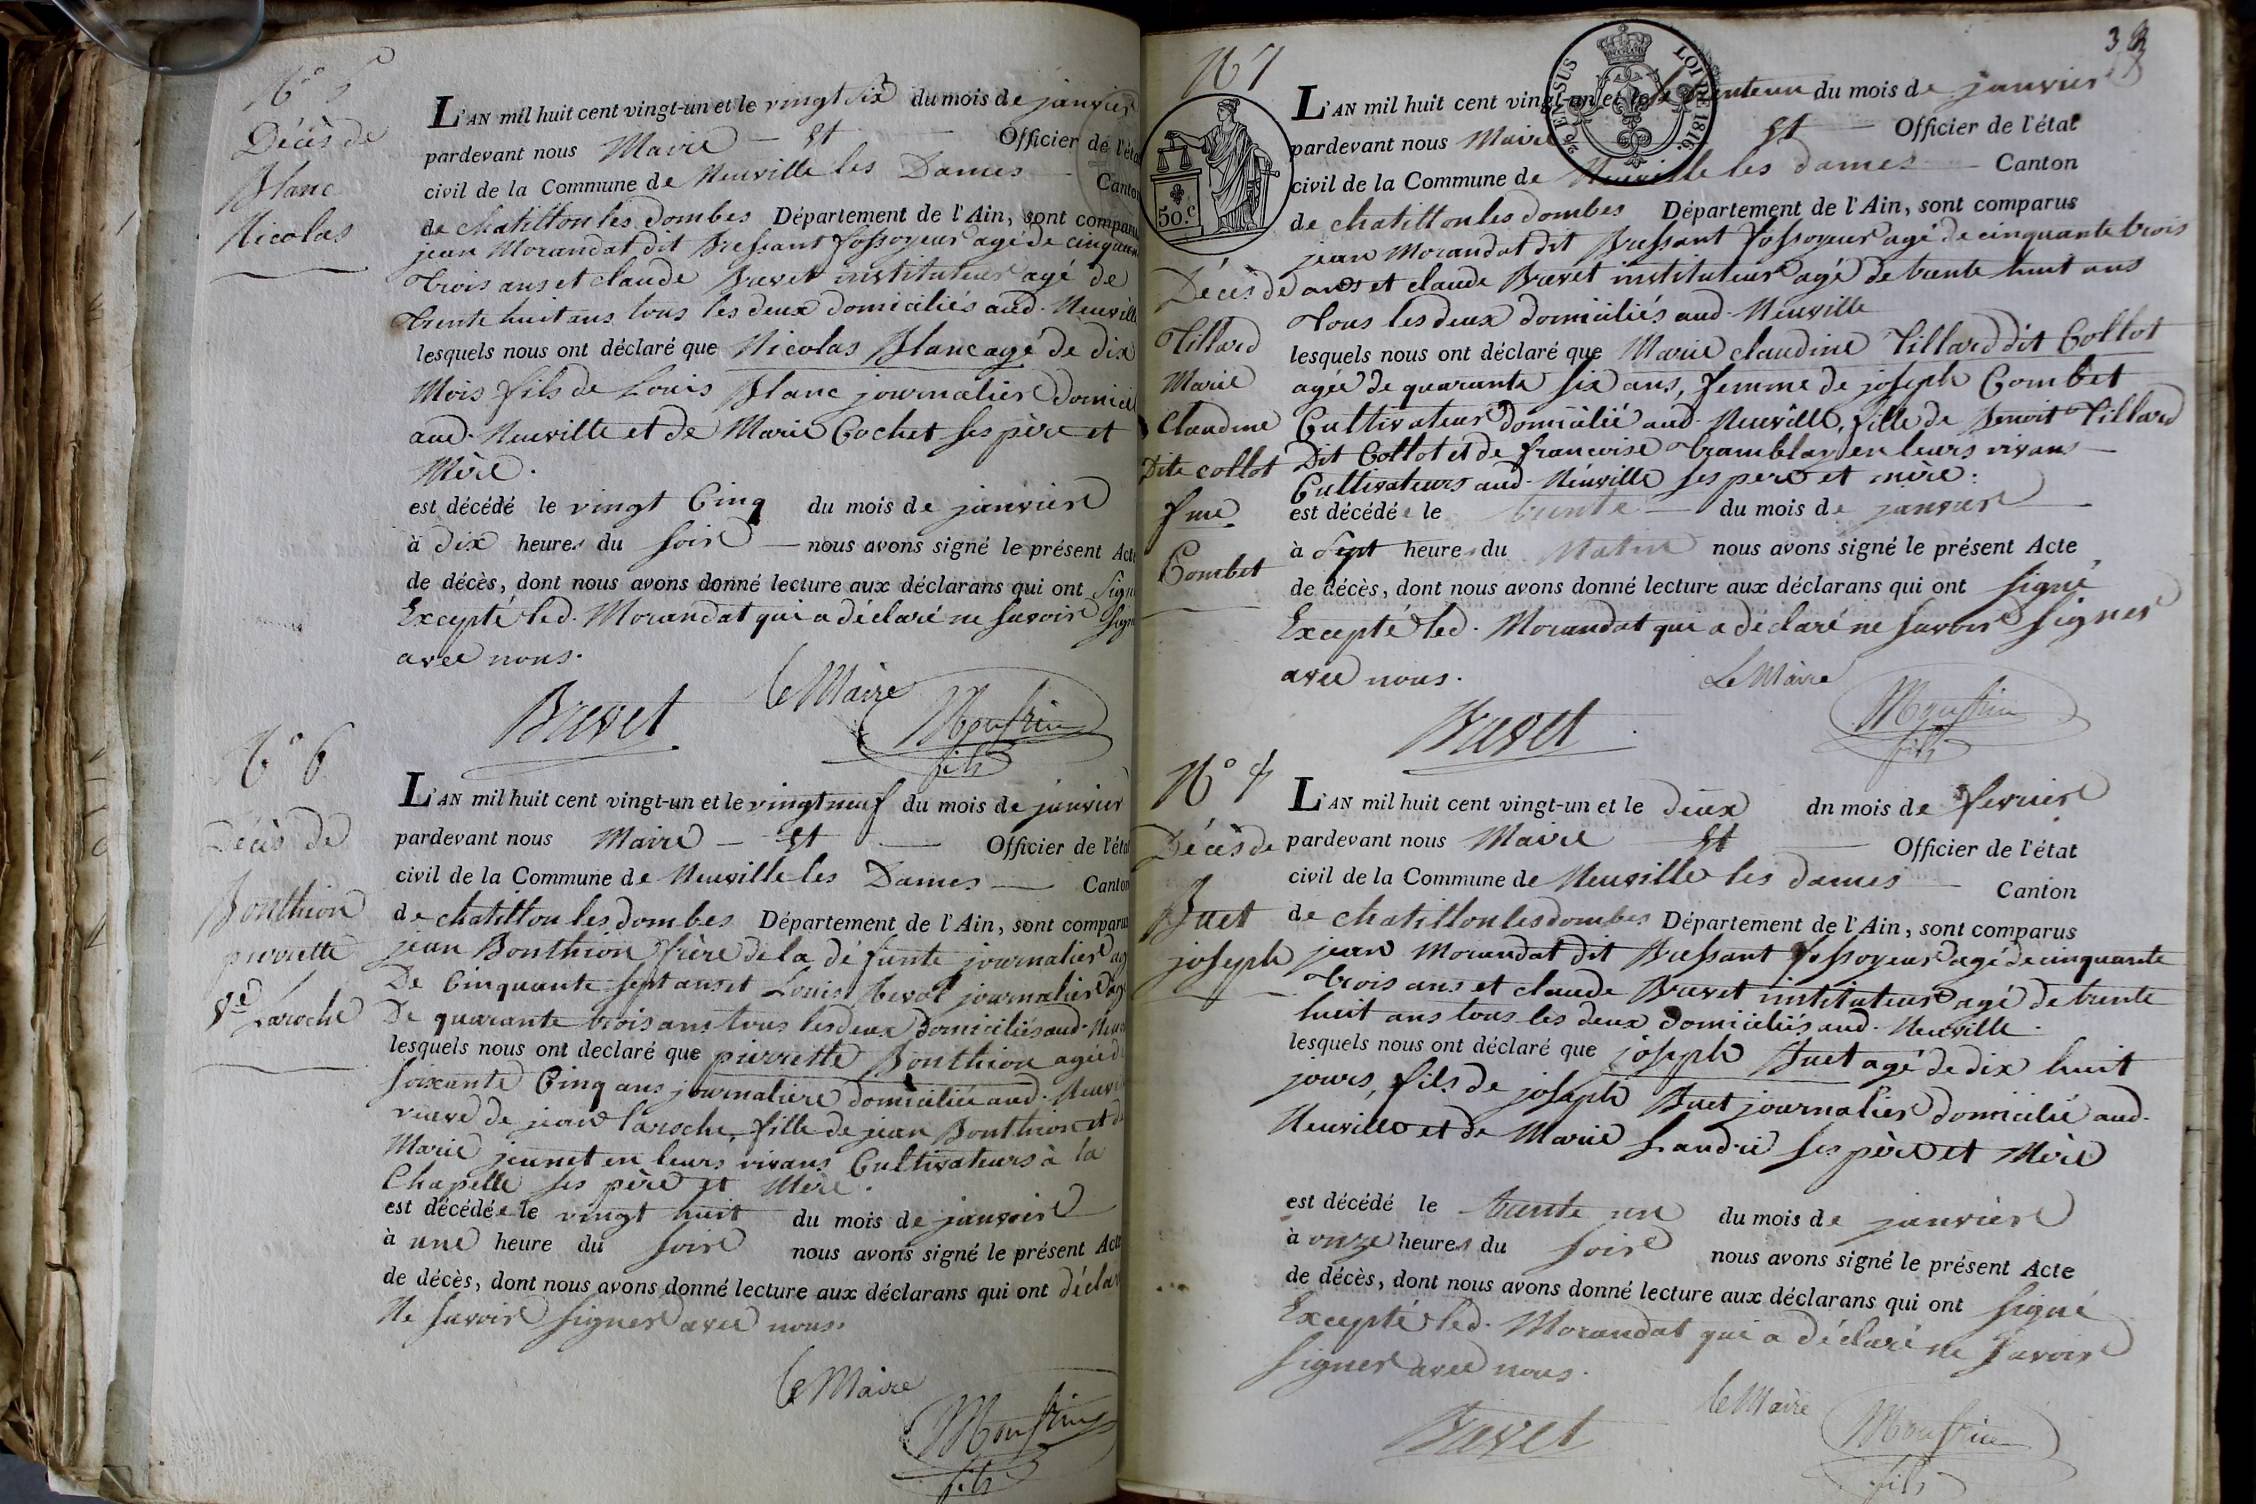 N° 5
Décès de
Blanc
Nicolas
L'AN mil huit cent vingt-un et le vingt six du mois de janvier
pardevant nous Maire — Et — Officier de l'éta
civil de la Commune de Neuville les Dames — Canton
de chatillon les dombes Département de l'Ain, sont comparu
jean Morandat dit Bressant fossoyeur agé de cinquan
trois ans et claude Brevet instituteur agé de
trente huit ans tous les deux domiciliés aud. Neuville
lesquels nous ont déclaré que Nicolas Blanc agé de dix
Mois fils de Louis Blanc journalier domicil
aud. Neuville et de Marie Cochet ses père et
Mère.
est décédé le vingt Cinq du mois de janvier
à dix heures du soir — nous avons signé le présent Acte
de décès, dont nous avons donné lecture aux déclarans qui ont signé
Excepté led. Morandat qui a déclaré ne savoir sign
avec nous.
le Maire
Brevet
Moufrin
fils
N° 6
Décès de
Bonthion
pierrette
Ve Laroche
L'AN mil huit cent vingt-un et le vingt neuf du mois de janvier
pardevant nous Maire — Et — Officier de l'éta
civil de la Commune de Neuville les Dames — Canton
de chatillon les dombes Département de l'Ain, sont comparus
jean Bonthion frère de la défunte journalier ag
De Cinquante sept ans et Louis journalier agé
De quarante trois ans tous les deux Domiciliés aud. Neuv
lesquels nous ont declaré que pierrette Bonthion agée de
soixante Cinq ans journaliere domiciliée aud. Neuvi
veuve de jean laroche, fille de jean Bonthion et de
Marie jeunet en leurs vivans Cultivateurs à la
Chapelle ses père et Mère.
est décédée le vingt huit du mois de janvier
à une heure du soir nous avons signé le présent Acte
de décès, dont nous avons donné lecture aux déclarans qui ont déclar
Ne savoir signer avec nous.
le Maire
Moufrin
fils
33
N 7
ENSUS
LOI DE 1816
50.c
Décès de
Tillard
Marie
Claudine
Dite collot
fme
Combet
L'AN mil huit cent vingt-un et le trenteun du mois de janvier
pardevant nous Maire Et — Officier de l'état
civil de la Commune de Neuville les dames — Canton
de chatillon les dombes Département de l'Ain, sont comparus
jean Morandat dit Bressant fossoyeur agé de cinquante trois
ans et claude Brevet instituteur agé de trente huit ans
tous les deux domiciliés aud. Neuville
lesquels nous ont déclaré que Marie claudine Tillard dit Collot
agée de quarante six ans, femme de joseph Combet
Cultivateur domicilié aud. Neuville, fille de Benoit Tillard
Dit Collot et de francoise Tramblay en leurs vivans —
Cultivateurs aud. Neuville ses pere et mère.
est décédée le trente — du mois de janvier —
à sept heures du Matin nous avons signé le présent Acte
de décès, dont nous avons donné lecture aux déclarans qui ont signé
Excepté led. Morandat qui a déclaré ne savoir signer
avec nous.
Le Maire
Brevet
Moufrin
fils
N°
Décès de
Buet
joseph
L'AN mil huit cent vingt-un et le deux dn mois de fevrier
pardevant nous Maire Et — Officier de l'état
civil de la Commune de Neuville les dames — Canton
de chatillon les dombes Département de l'Ain, sont comparus
jean Morandat dit Bressant fossoyeur agé de cinquante
trois ans et claude Brevet instituteur agé de trente
huit ans tous les deux domiciliés aud. Neuville.
lesquels nous ont déclaré que joseph Buet agé de dix huit
jours, fils de joseph Buet journalier domicilié aud.
Neuville et de Marie Landrié ses père et Mère
est décédé le trente un du mois de janvier
à onze heures du soir nous avons signé le présent Acte
de décès, dont nous avons donné lecture aux déclarans qui ont signé
Excepté led. Morandat qui a déclaré ne savoir
signer avec nous.
le Maire
Brevet
Moufrin
fils